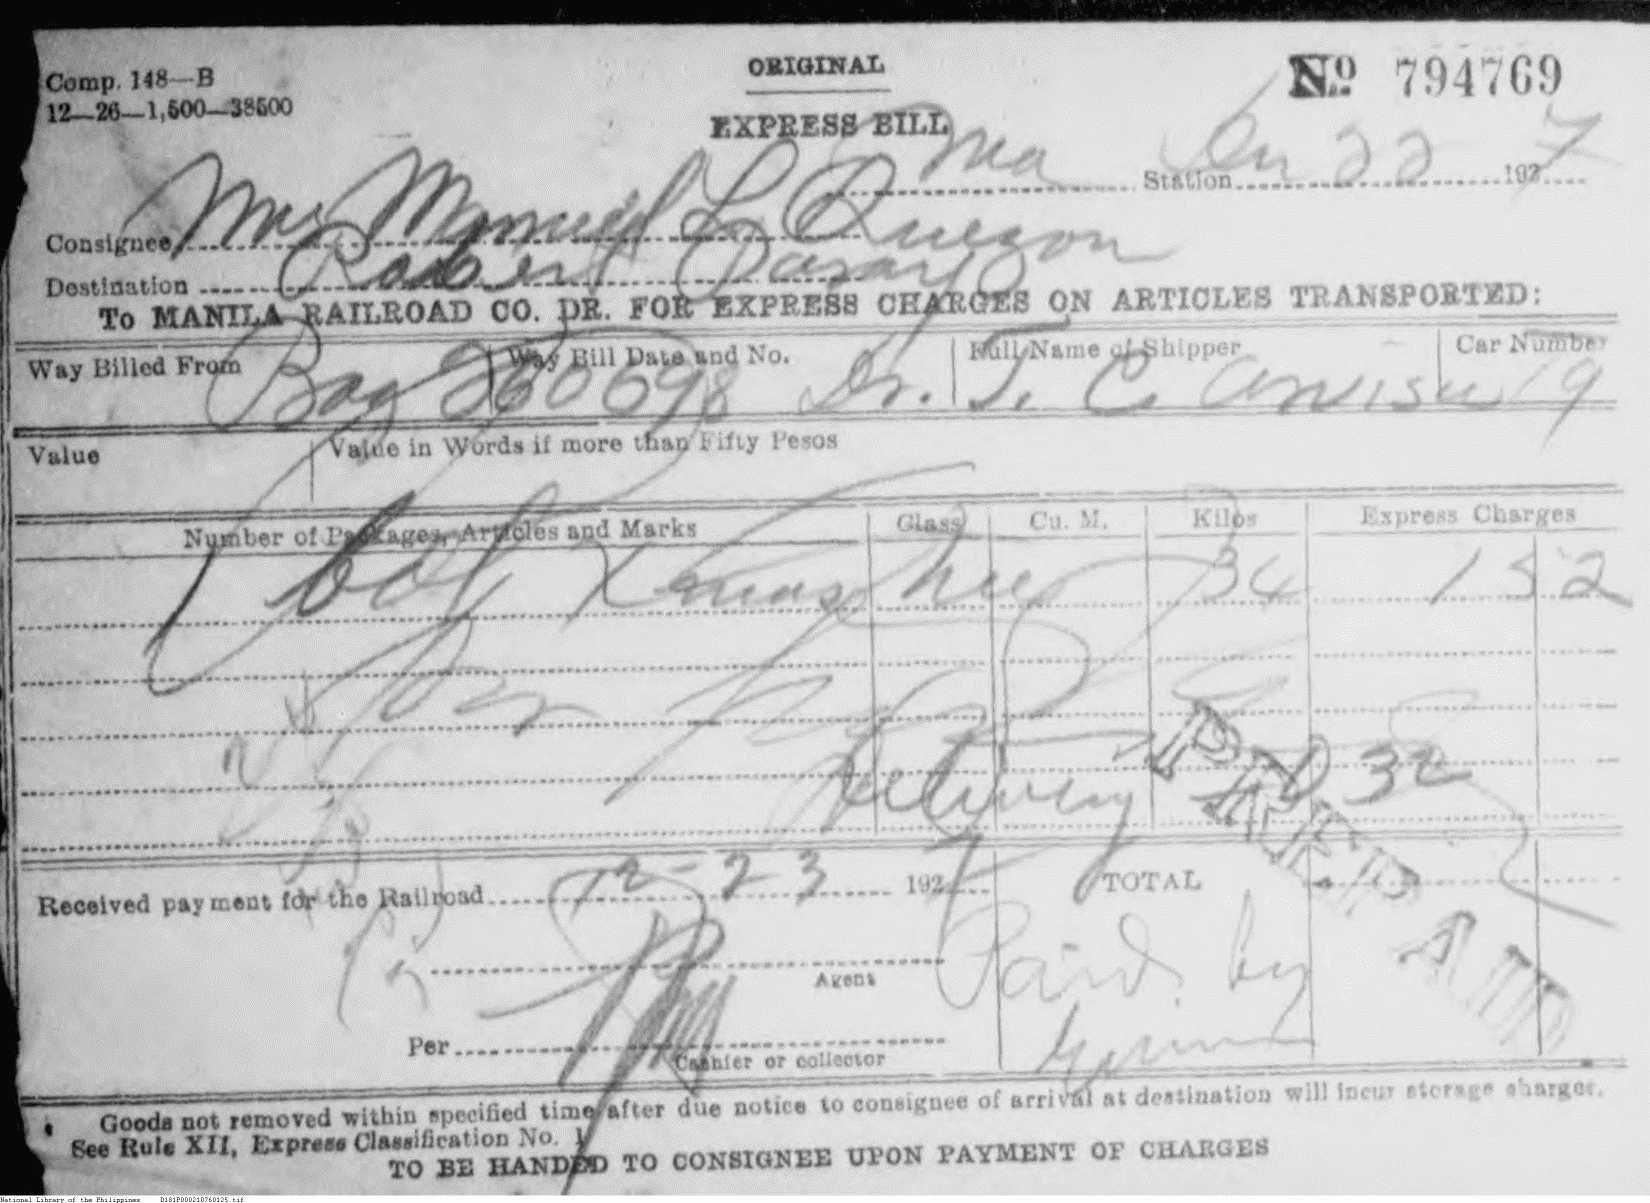 Comp. 148—B
12—26—1,500—38500
ORIGINAL
No 794769
EXPRESS BILL
Mla Station Dec 22 1927
Consignee Mrs Manuel L Quezon
Destination Robert Pasay
To MANILA RAILROAD CO. DR. FOR EXPRESS CHARGES ON ARTICLES TRANSPORTED:
Way Billed From Way Bill Date and No. Full Name of Shipper Car Number
Bag 230698 Dr. T. C. 19
Value Value in Words if more than Fifty Pesos
Number of Packages, Articles and Marks Class Cu. M. Kilos Express Charges
1 Xmas tree 34 1 52
Delivery 32
PREPAID
Received payment for the Railroad 12-23 1927 TOTAL
Agent
Paid by
Per
Cashier or collector
Goods not removed within specified time after due notice to consignee of arrival at destination will incur storage charges.
See Rule XII, Express Classification No. 1
TO BE HANDED TO CONSIGNEE UPON PAYMENT OF CHARGES
National Library of the Philippines D181P000210760125.tif